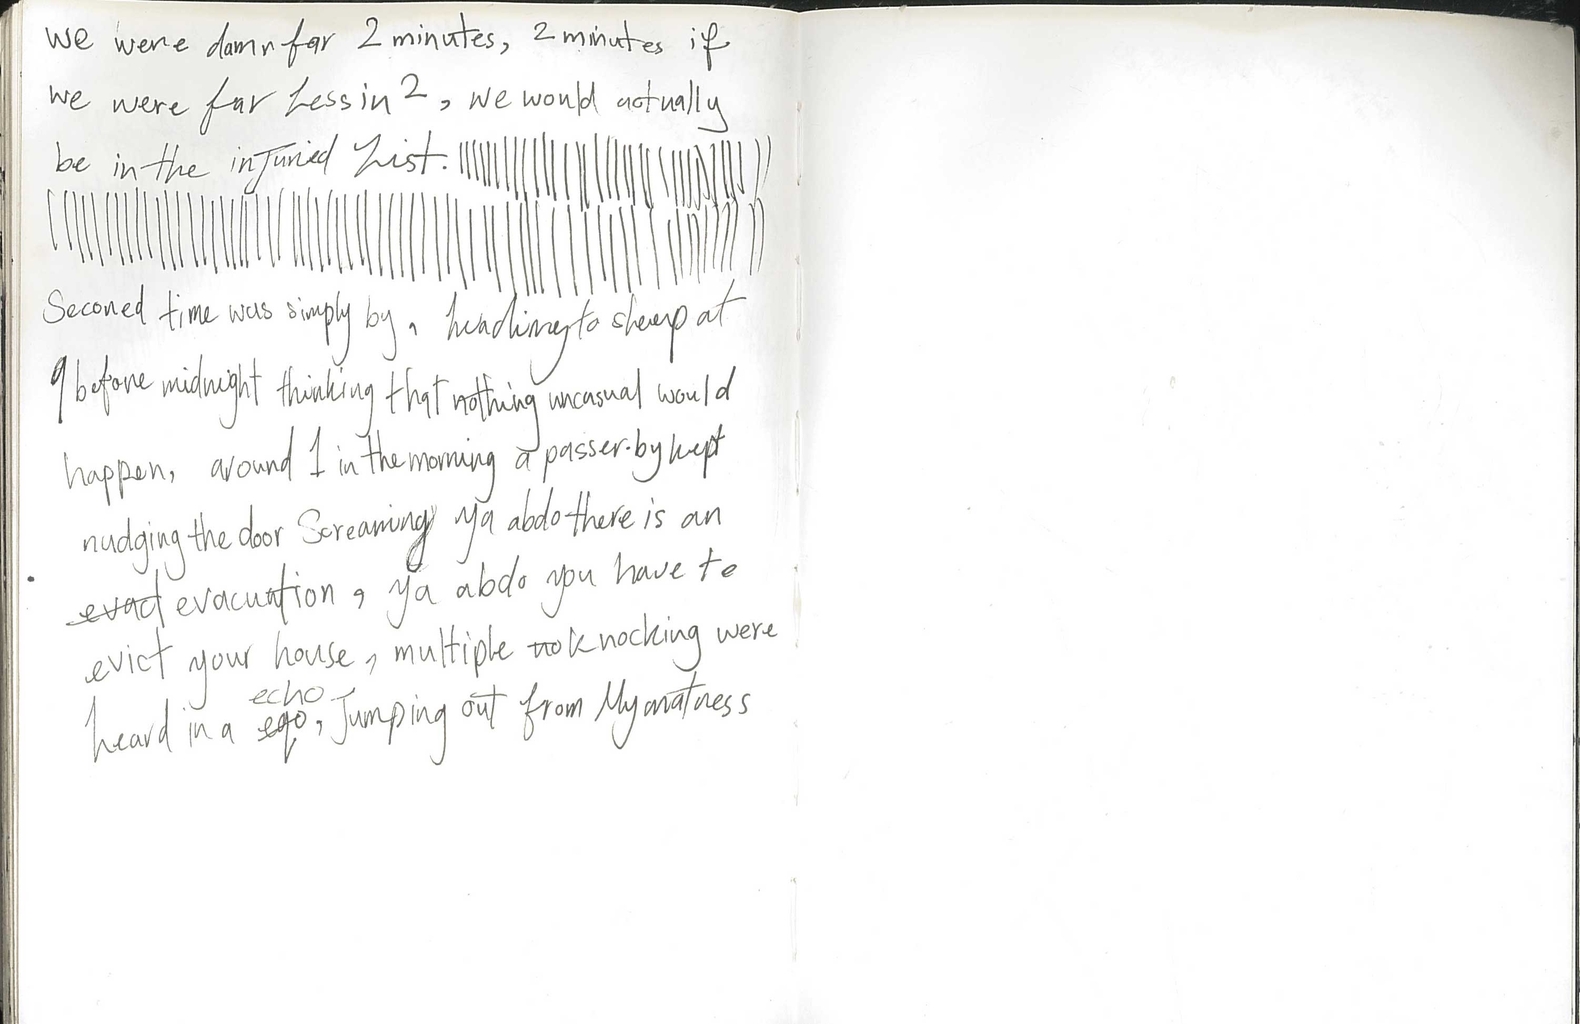 we were damn far 2 minutes, 2 minutes if
we were far Less in 2, we would actually
be in the injuried List.
Seconed time was simply by, heading to sleep at
9 before midnight thinking that nothing uncasual would
happen, around 1 in the morning a passer-by kept
nudging the door Screaming ya abdo there is an
evact evacuation, ya abdo you have to
evict your house, multiple no knocking were
echo
heard in a eqo, Jumping out from My matness